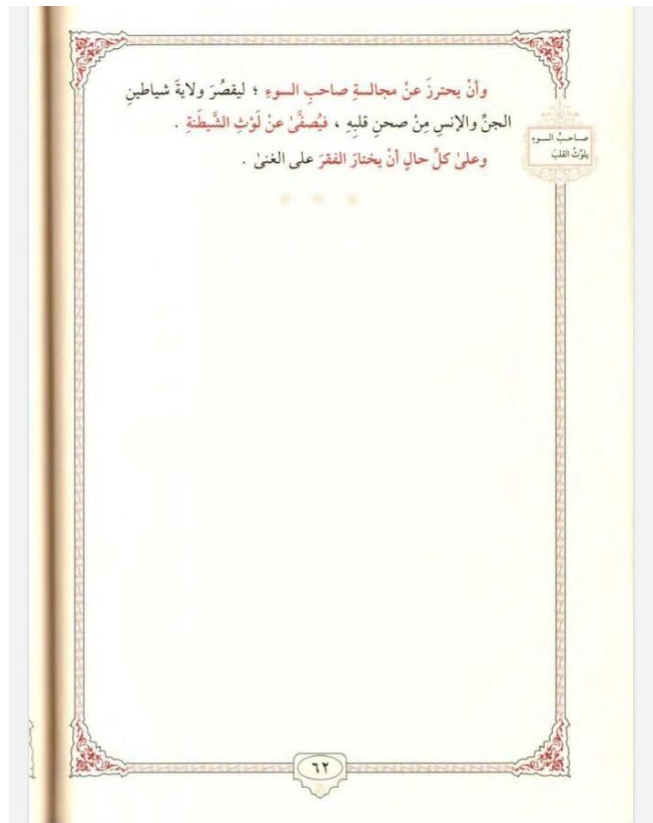 وأنْ يحترزَ عنْ مجالسةِ صاحبِ السوءِ ؛ ليقصُرَ ولايةَ شياطينِ
الجنِّ والإنسِ مِنْ صحنِ قلبِهِ ، فيُصفَّىٰ عنْ لَوْثِ الشَّيطَنةِ .
وعلىٰ كلِّ حالٍ أنْ يختارَ الفقرَ على الغنىٰ .
صاحبُ السوءِ
يلوّثُ القلبَ
٦٢